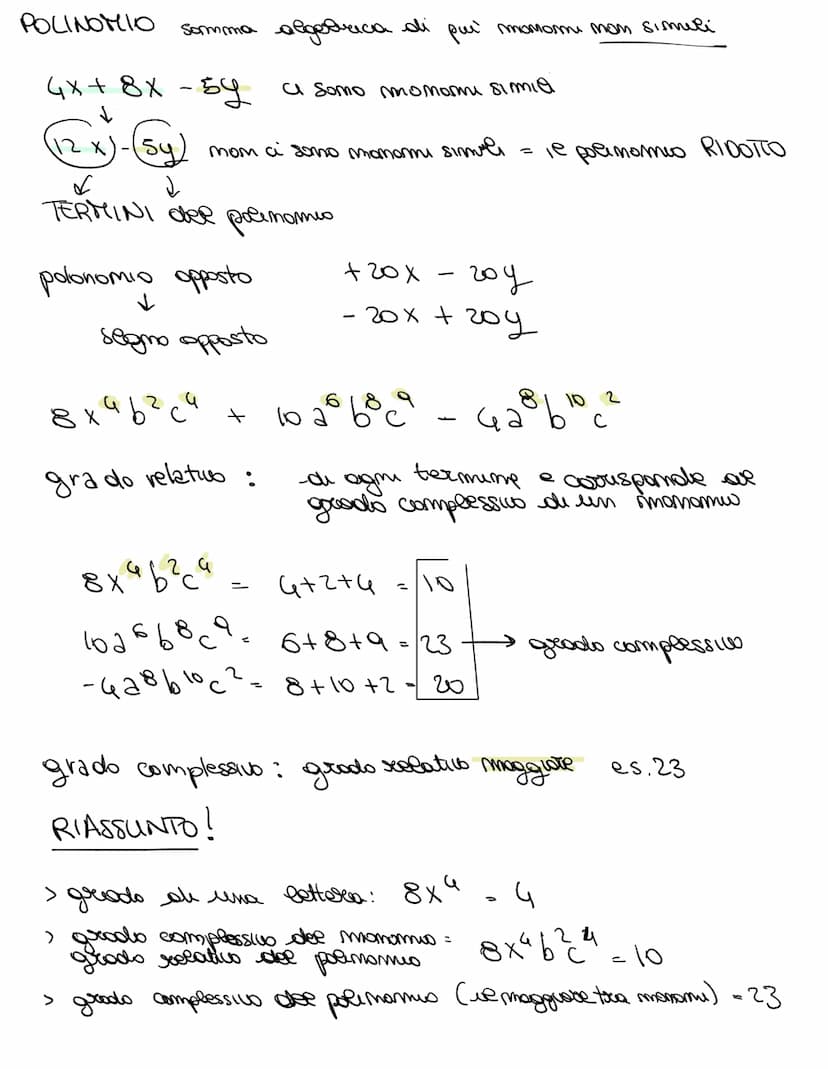 POLINOMIO somma algebrica di più monomi non simili
4x + 8x - 5y ci sono monomi simili
↓
12x - 5y non ci sono monomi simili = il polinomio RIDOTTO
↙ ↓
TERMINI del polinomio
polonomio opposto +20x - 20y
↓ - 20x + 20y
segno opposto
8x⁴b²c⁴ + 10a⁶b⁸c⁹ - 4a⁸b¹⁰c²
grado relativo : di ogni termine e corrisponde al
grado complessivo di un monomio
8x⁴b²c⁴ = 4+2+4 = 10
10a⁶b⁸c⁹ = 6+8+9 = 23 → grado complessivo
-4a⁸b¹⁰c² = 8+10+2 = 20
grado complessivo : grado relativo maggiore es. 23
RIASSUNTO!
> grado di una lettera: 8x⁴ = 4
> grado complessivo del monomio =
grado relativo del polinomio 8x⁴b²c⁴ = 10
> grado complessivo del polinomio (il maggiore tra monomi) = 23